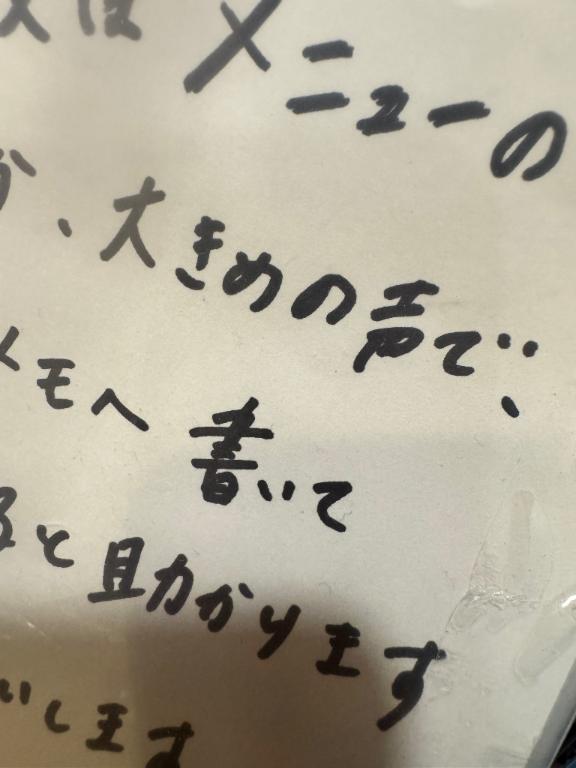 はメニューの
、大きめの声で、
メモへ書いて
ると助かります
いします